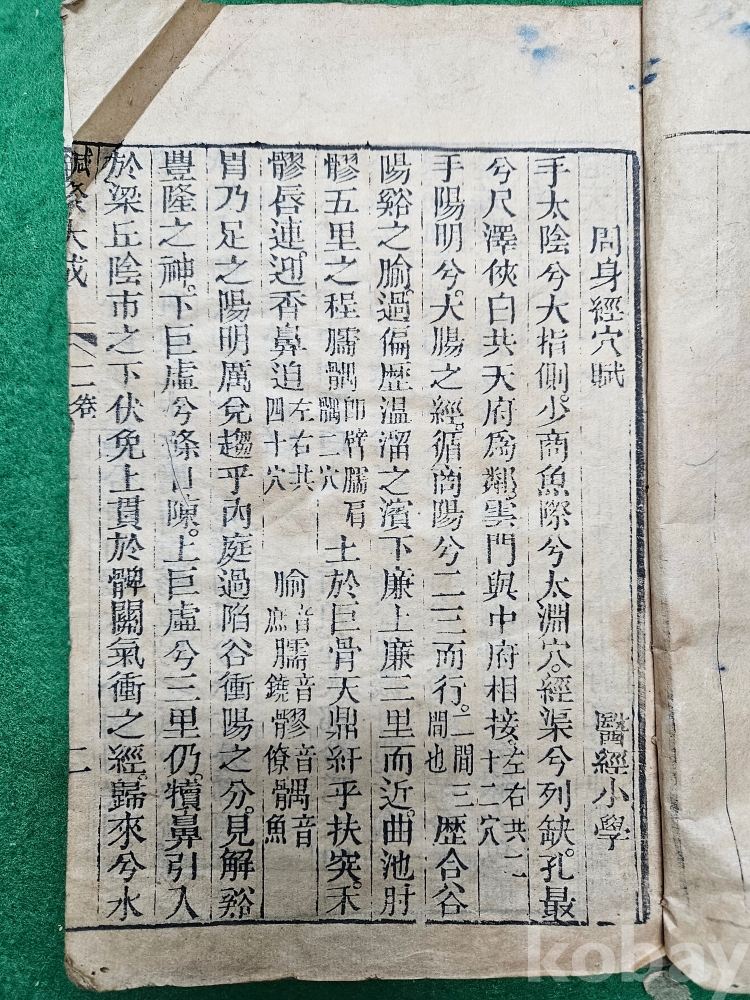 周身經穴賦 醫經小學
手太陰兮大指側。少商魚際兮太淵穴。經渠兮列缺。孔最
兮尺澤俠白共天府為鄰。雲門與中府相接。左右共二十二穴
手陽明兮。大腸之經。循商陽兮二三而行。二間三間也歷合谷
陽谿之腧。過偏歷温溜之濱下廉上廉三里而近。曲池肘
髎五里之程臑髃即臂臑肩髃二穴上於巨骨天鼎紆乎扶突。禾
髎唇連。迎香鼻迫左右共四十穴 腧音庶臑音鐃髎音僚髃音魚
胃乃足之陽明厲兌趨乎內庭過陷谷衝陽之分。見解谿
豊隆之神。下巨虛兮條口陳。上巨虛兮三里仍。犢鼻引入
於梁丘陰市之下伏兔上貫於髀關氣衝之經。歸來兮水
鍼灸大成 二卷 二
kobay